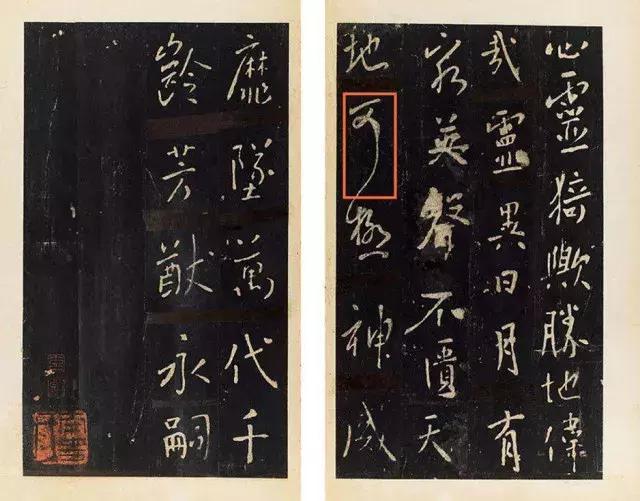 心靈猗歟勝地偉
哉靈異日月有
窮英聲不匱天
地可極神威
靡墜萬代千
齡芳猷永嗣